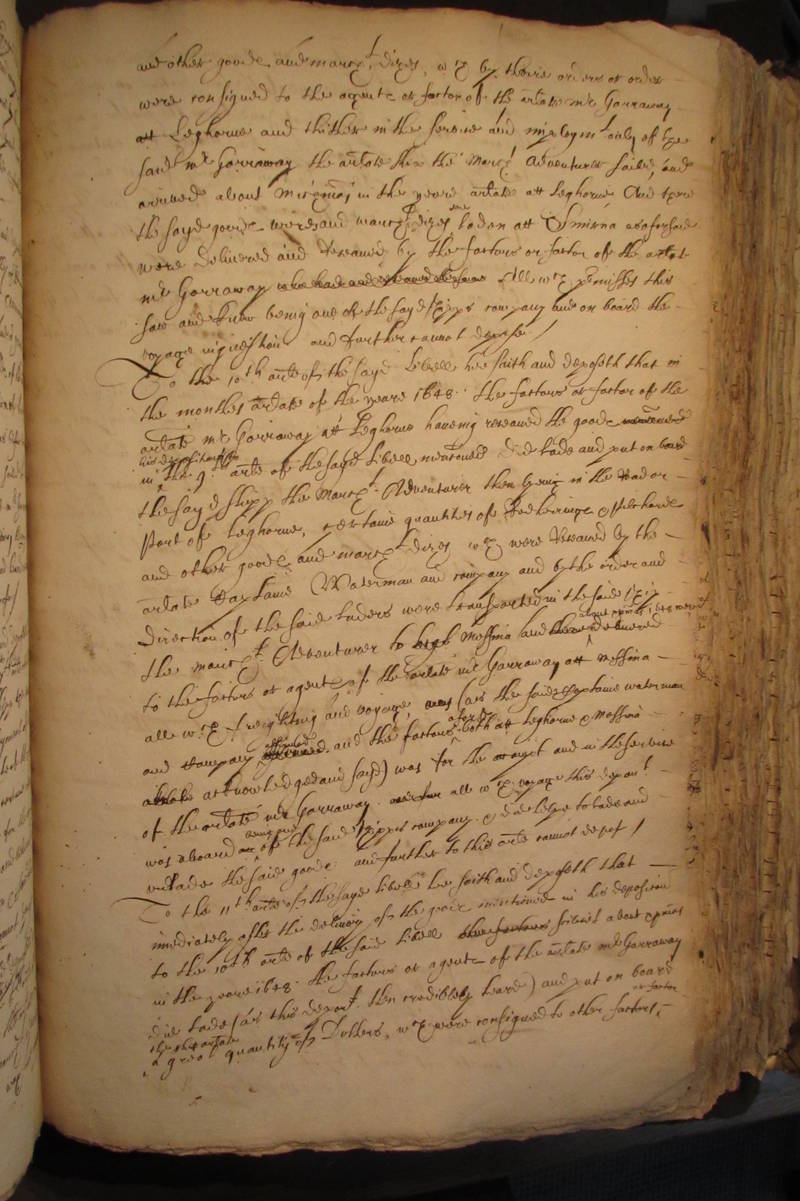 and other goods and marchandizes, wch by theire orders or order
were consigned to the agents or factor of the arlate mr Garraway
att Leghorne and thither in the service and imployment only of the
said mr Garraway the arlate shipp the Marchant Adventurer sailed, and
arrived about in the yeere arlate att Leghorne And there
the sayd goods wares and marchandizes soe laden att Smirna as aforesaid
were delivered and received by the factors or factor of the arlate
mr Garraway All wch premisses this
saw and knew being one of the sayd shipps company and on board the
voyage in question and further cannot depose /
To the 10th arle of the sayd libell hee saith and deposeth that in
the monthes arlate of the yeare 1648. the factors or factor of the
arlate mr Garraway att Leghorne having received the goods
in his deposition to the 9th arle of the sayd libell mentioned did lade and put on board
the sayd shipp the Marchant Adventurer then lyeing in the Road or
Port of Leghorne, certaine quantities of Pilchards
and other goods and marchandizes wch were received by the
arlate Captaine Waterman and company and by the order and
direction of the said laders were transported in the said shipp
the Marchant Adventurer to Messina and there about 1648 were delivered
to the factors or agents of the arlate mr Garraway att Messina
all wch freighting and voyage (as the said Captaine Waterman
and company affirmed and the factors aforesd both att Leghorne & Messina
acknowledged and sayd) was for the accompt and in the service
of the arlate mr Garraway. all wch voyage this deponent
was aboard being one of the said shipps company & did helpe to lade and
unlade the said goods and further to this arle cannot depose /
To the 11th arle of the sayd libell hee saith and deposeth that
imediately after the delivery of the goods mentioned in his deposition
to the 10th arle of the said libell scilicet about
in the yeere 1648. the factors or agents of the arlate mr Garraway
did lade (as this deponent then credibly heard) and put on board
the shipp arlate a great quantity of Dollers, wch were consigned to other factors or factor